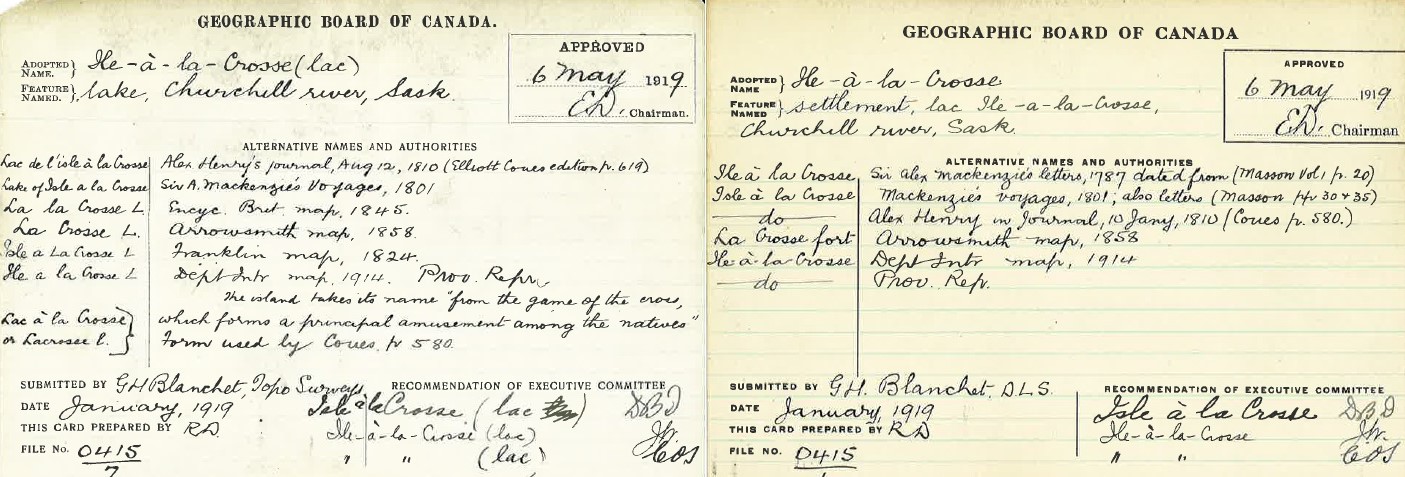 GEOGRAPHIC BOARD OF CANADA.
ADOPTED NAME. } Ile-à-la-Crosse (lac)
FEATURE NAMED. } lake, Churchill river, Sask.
APPROVED
6 May 1919
ED. Chairman.
ALTERNATIVE NAMES AND AUTHORITIES
Lac de l'isle à la Crosse Alex Henry's journal, Aug 12, 1810 (Elliott Coues edition p. 619)
Lake of Isle a la Crosse Sir A. Mackenzie's Voyages, 1801
La la Crosse L. Encyc. Brit. map, 1845.
La Crosse L. Arrowsmith map, 1858.
Isle a La Crosse L Franklin map, 1824.
Ile a la Crosse L Dept Intr map, 1914. Prov. Repr.
The island takes its name "from the game of the cross,
Lac à la Crosse } which forms a principal amusement among the natives"
or Lacrosse l. } Form used by Coues. p 580.
SUBMITTED BY GH Blanchet, Topo Surveys
DATE January, 1919
THIS CARD PREPARED BY RD
FILE No. 0415
7
RECOMMENDATION OF EXECUTIVE COMMITTEE
Isle à la Crosse (lac) DBD
Ile-à-la-Crosse (lac)
" " (lac)
GEOGRAPHIC BOARD OF CANADA
ADOPTED NAME } Ile-à-la-Crosse
FEATURE NAMED } settlement, lac Ile-a-la-Crosse,
Churchill river, Sask.
APPROVED
6 May 1919
ED. Chairman
ALTERNATIVE NAMES AND AUTHORITIES
Ile à la Crosse Sir Alex Mackenzie's letters, 1787 dated from (Masson Vol 1 p. 20)
Isle à la Crosse Mackenzie's voyages, 1801; also letters (Masson pp 30 + 35)
do Alex Henry in Journal, 10 Jany, 1810 (Coues p. 580.)
La Crosse fort Arrowsmith map, 1858
Ile-à-la-Crosse Dept Intr map, 1914
do Prov. Rep.
SUBMITTED BY G.H. Blanchet, D.L.S.
DATE January, 1919
THIS CARD PREPARED BY RD
FILE No. 0415
RECOMMENDATION OF EXECUTIVE COMMITTEE
Isle à la Crosse DBD
Ile-à-la-Crosse
" "